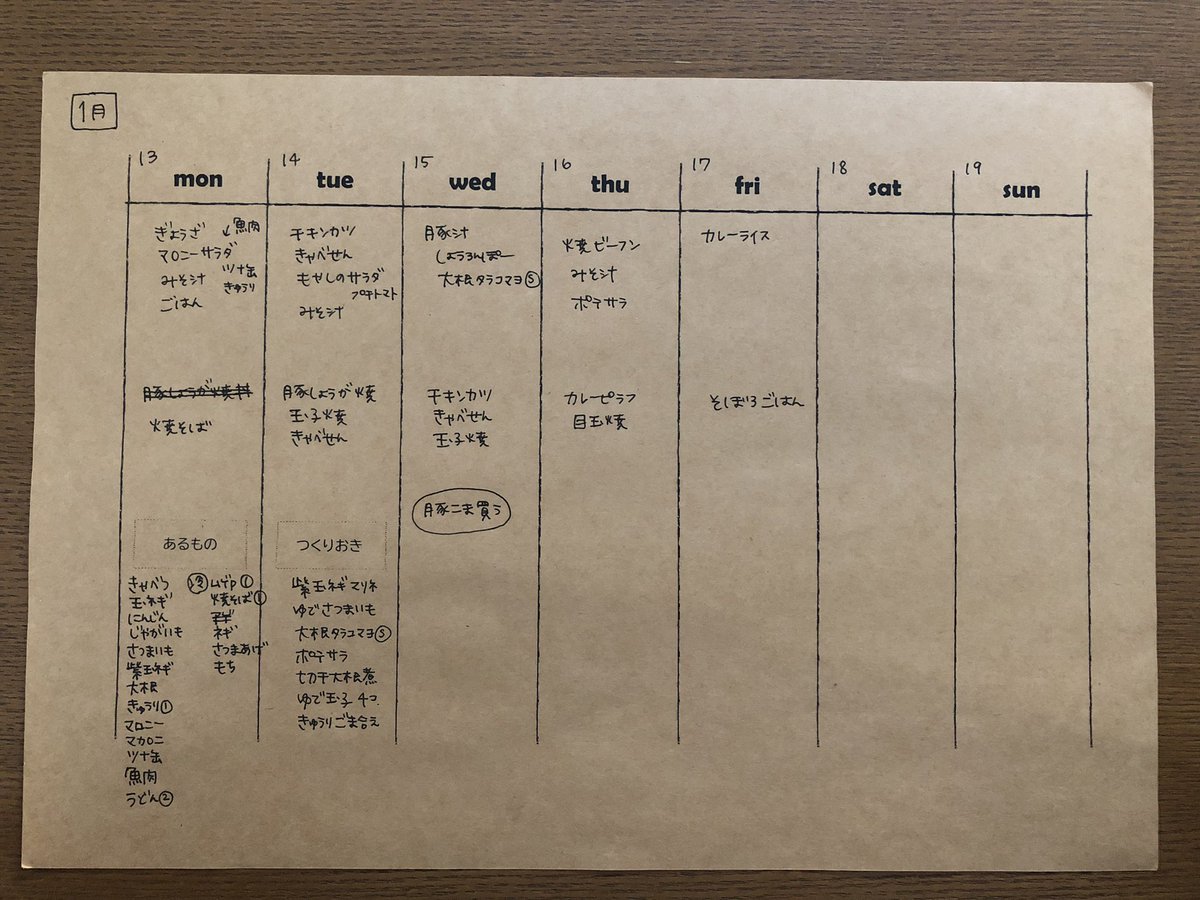 1月
13 mon
ぎょうざ ↙魚肉
マロニーサラダ
みそ汁 ツナ缶
きゅうり
ごはん
豚しょうが焼丼
焼そば
14 tue
チキンカツ
きゃべせん
もやしのサラダ
プチトマト
みそ汁
豚しょうが焼
玉子焼
きゃべせん
15 wed
豚汁
しょうろんぽー
大根タラコマヨⓈ
チキンカツ
きゃべせん
玉子焼
豚こま買う
16 thu
焼ビーフン
みそ汁
ポテサラ
カレーピラフ
目玉焼
17 fri
カレーライス
そぼろごはん
18 sat
19 sun
あるもの
きゃべつ
玉ネギ
にんじん
じゃがいも
さつまいも
紫玉ネギ
大根
きゅうり①
マロニー
マカロニ
ツナ缶
魚肉
うどん②
冷
焼そば①
ネギ
さつまあげ
もち
つくりおき
紫玉ネギマリネ
ゆでさつまいも
大根タラコマヨⓈ
ポテサラ
切干大根煮
ゆで玉子 4コ
きゅうりごま合え